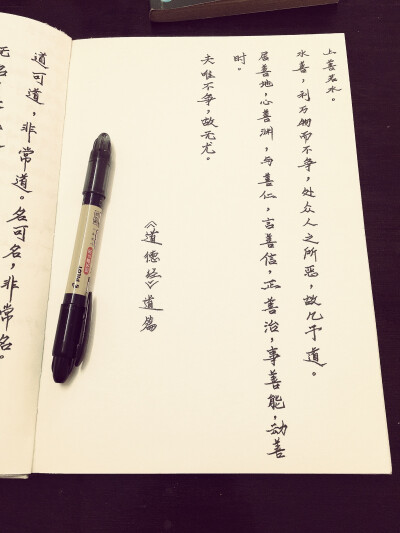 上善若水。
水善，利万物而不争，处众人之所恶，故几于道。
居善地，心善渊，与善仁，言善信，正善治，事善能，动善
时。
夫唯不争，故无尤。
《道德经》道篇
PILOT
道可道，非常道。名可名，非常名。
无名